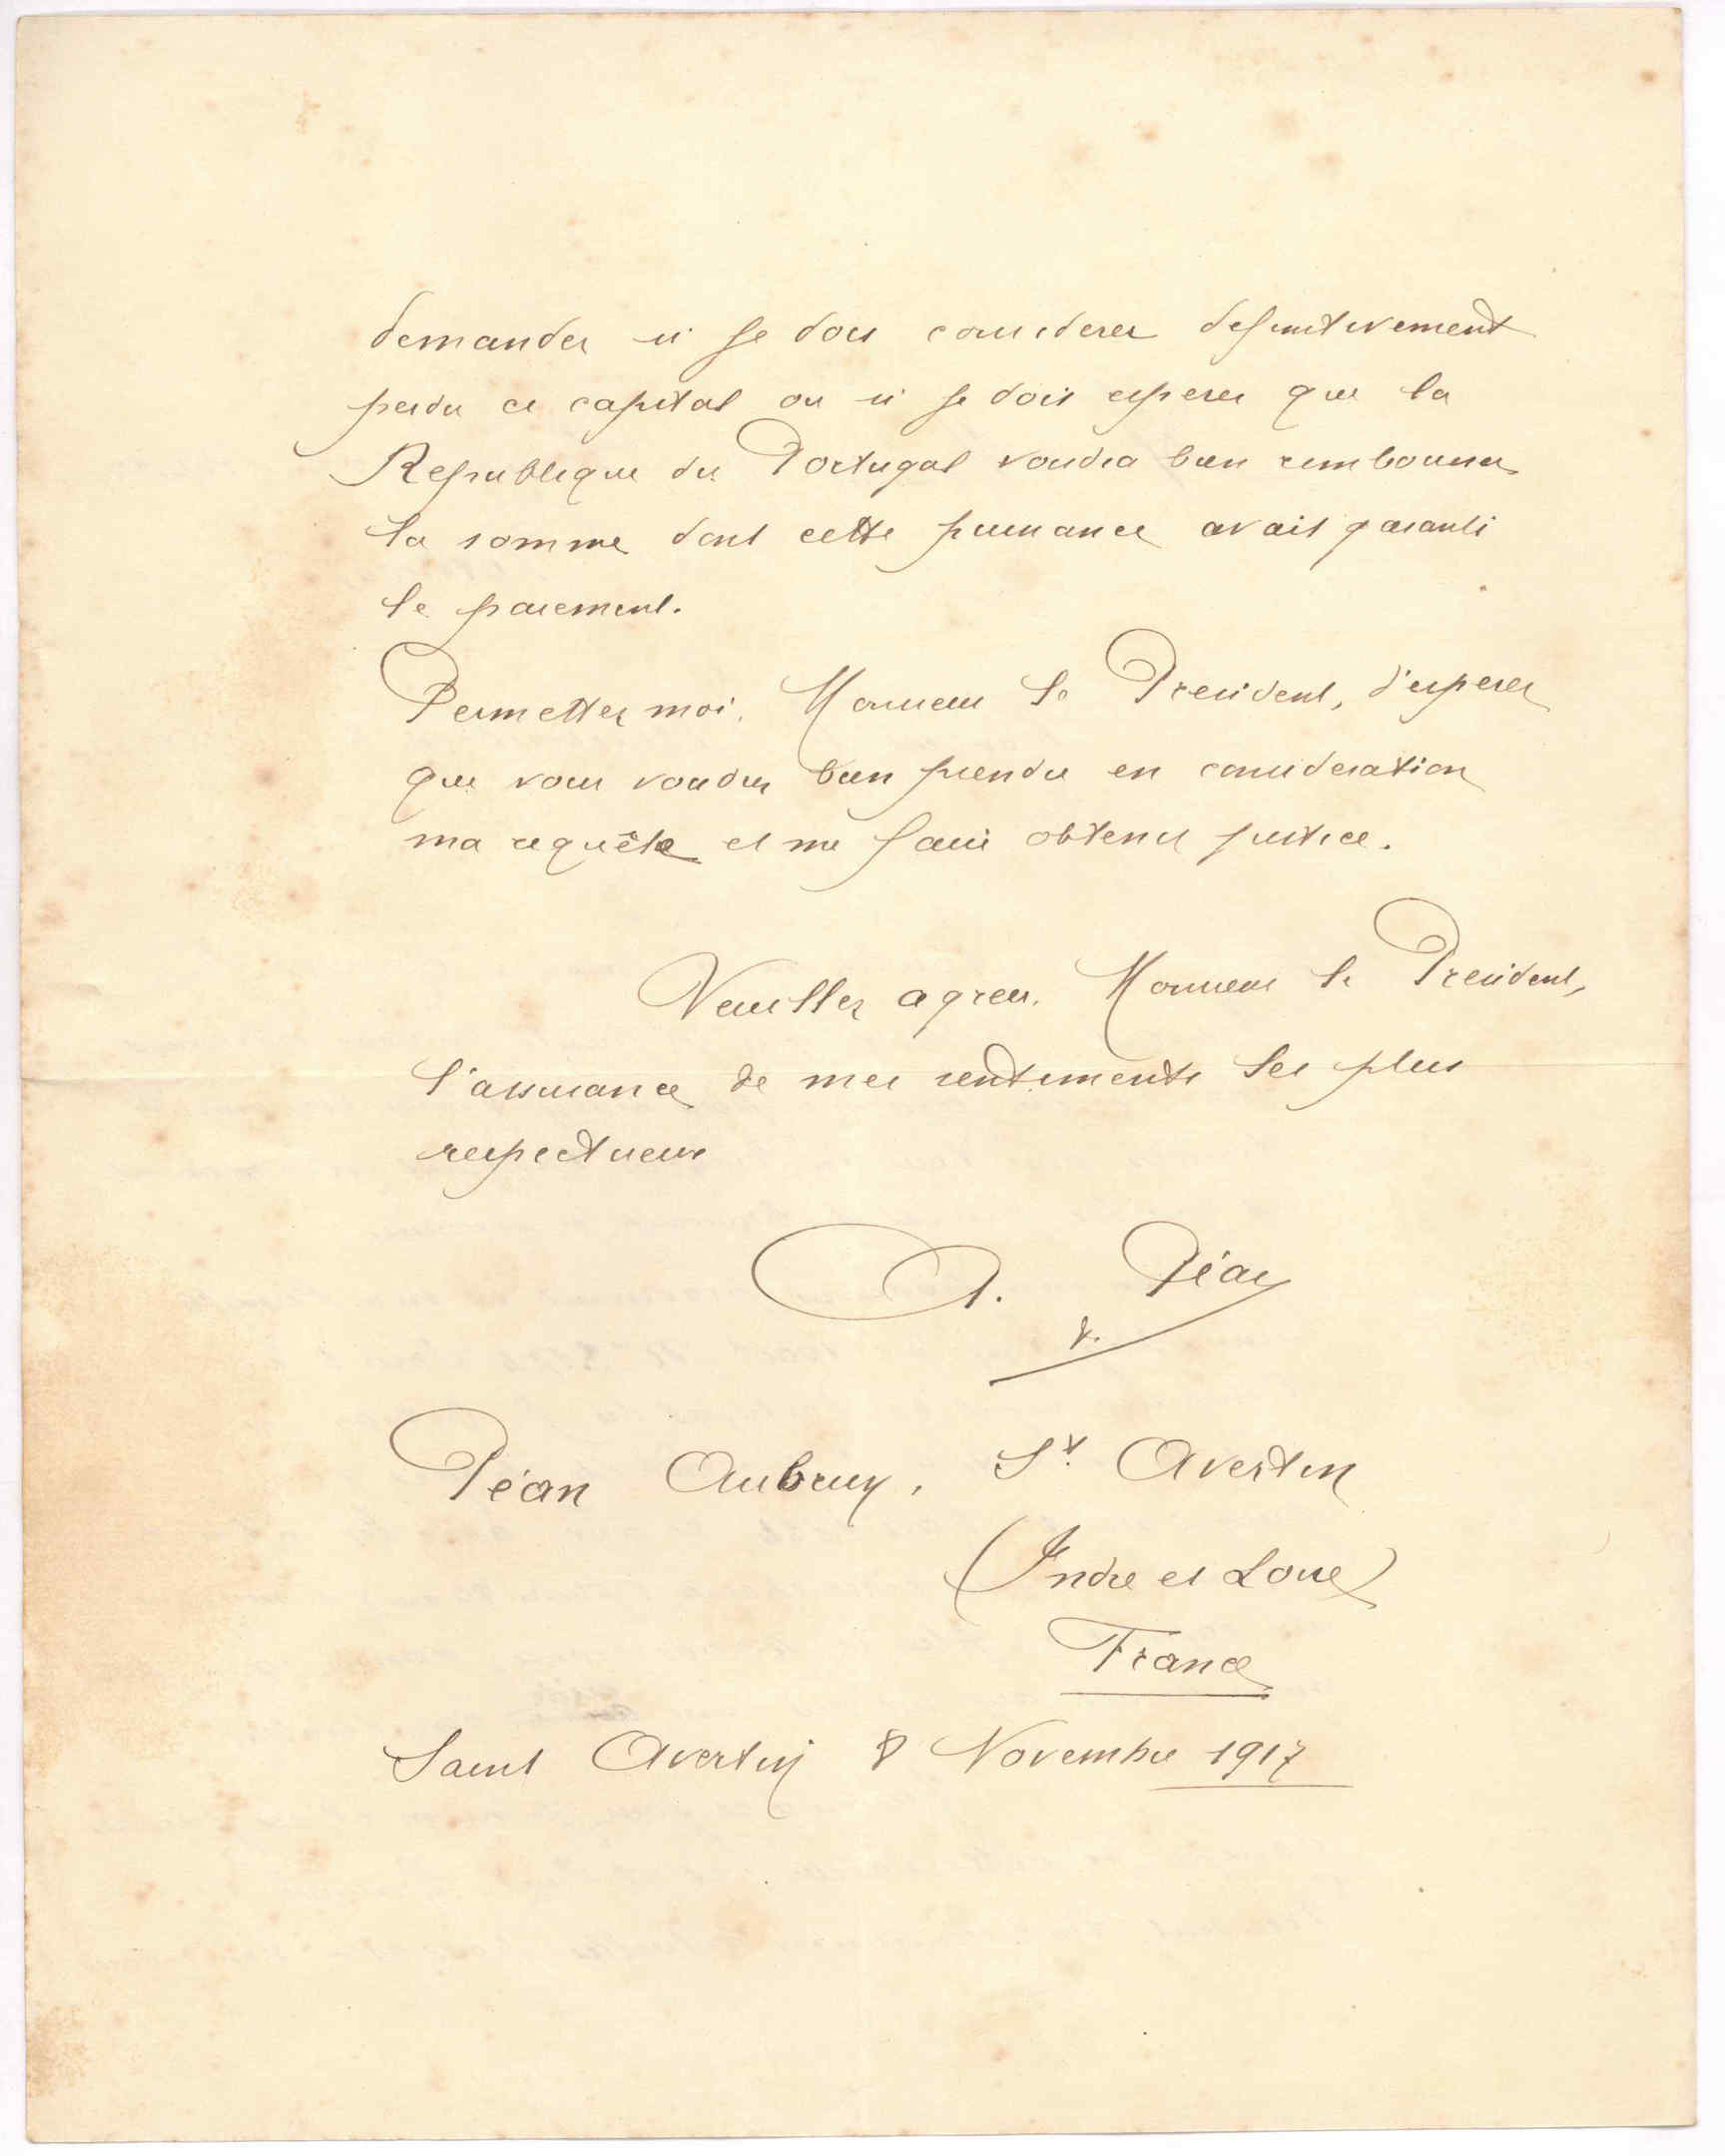 demander si je dois considerer definitivement
perdu ce capital ou si je dois esperer que la
Republique du Portugal voudra bien rembourser
la somme dont cette puissance avait garanti
le paiement.
Permettez moi, Monsieur le President, d'esperer
que vous voudrez bien prendre en consideration
ma requête et me faire obtenir justice.
Veuillez agreer, Monsieur le President,
l'assurance de mes sentiments les plus
respectueux
A. Péan
Péan Aubruy, St. Avertin
(Indre et Loire)
France
Saint Avertin 8 Novembre 1917